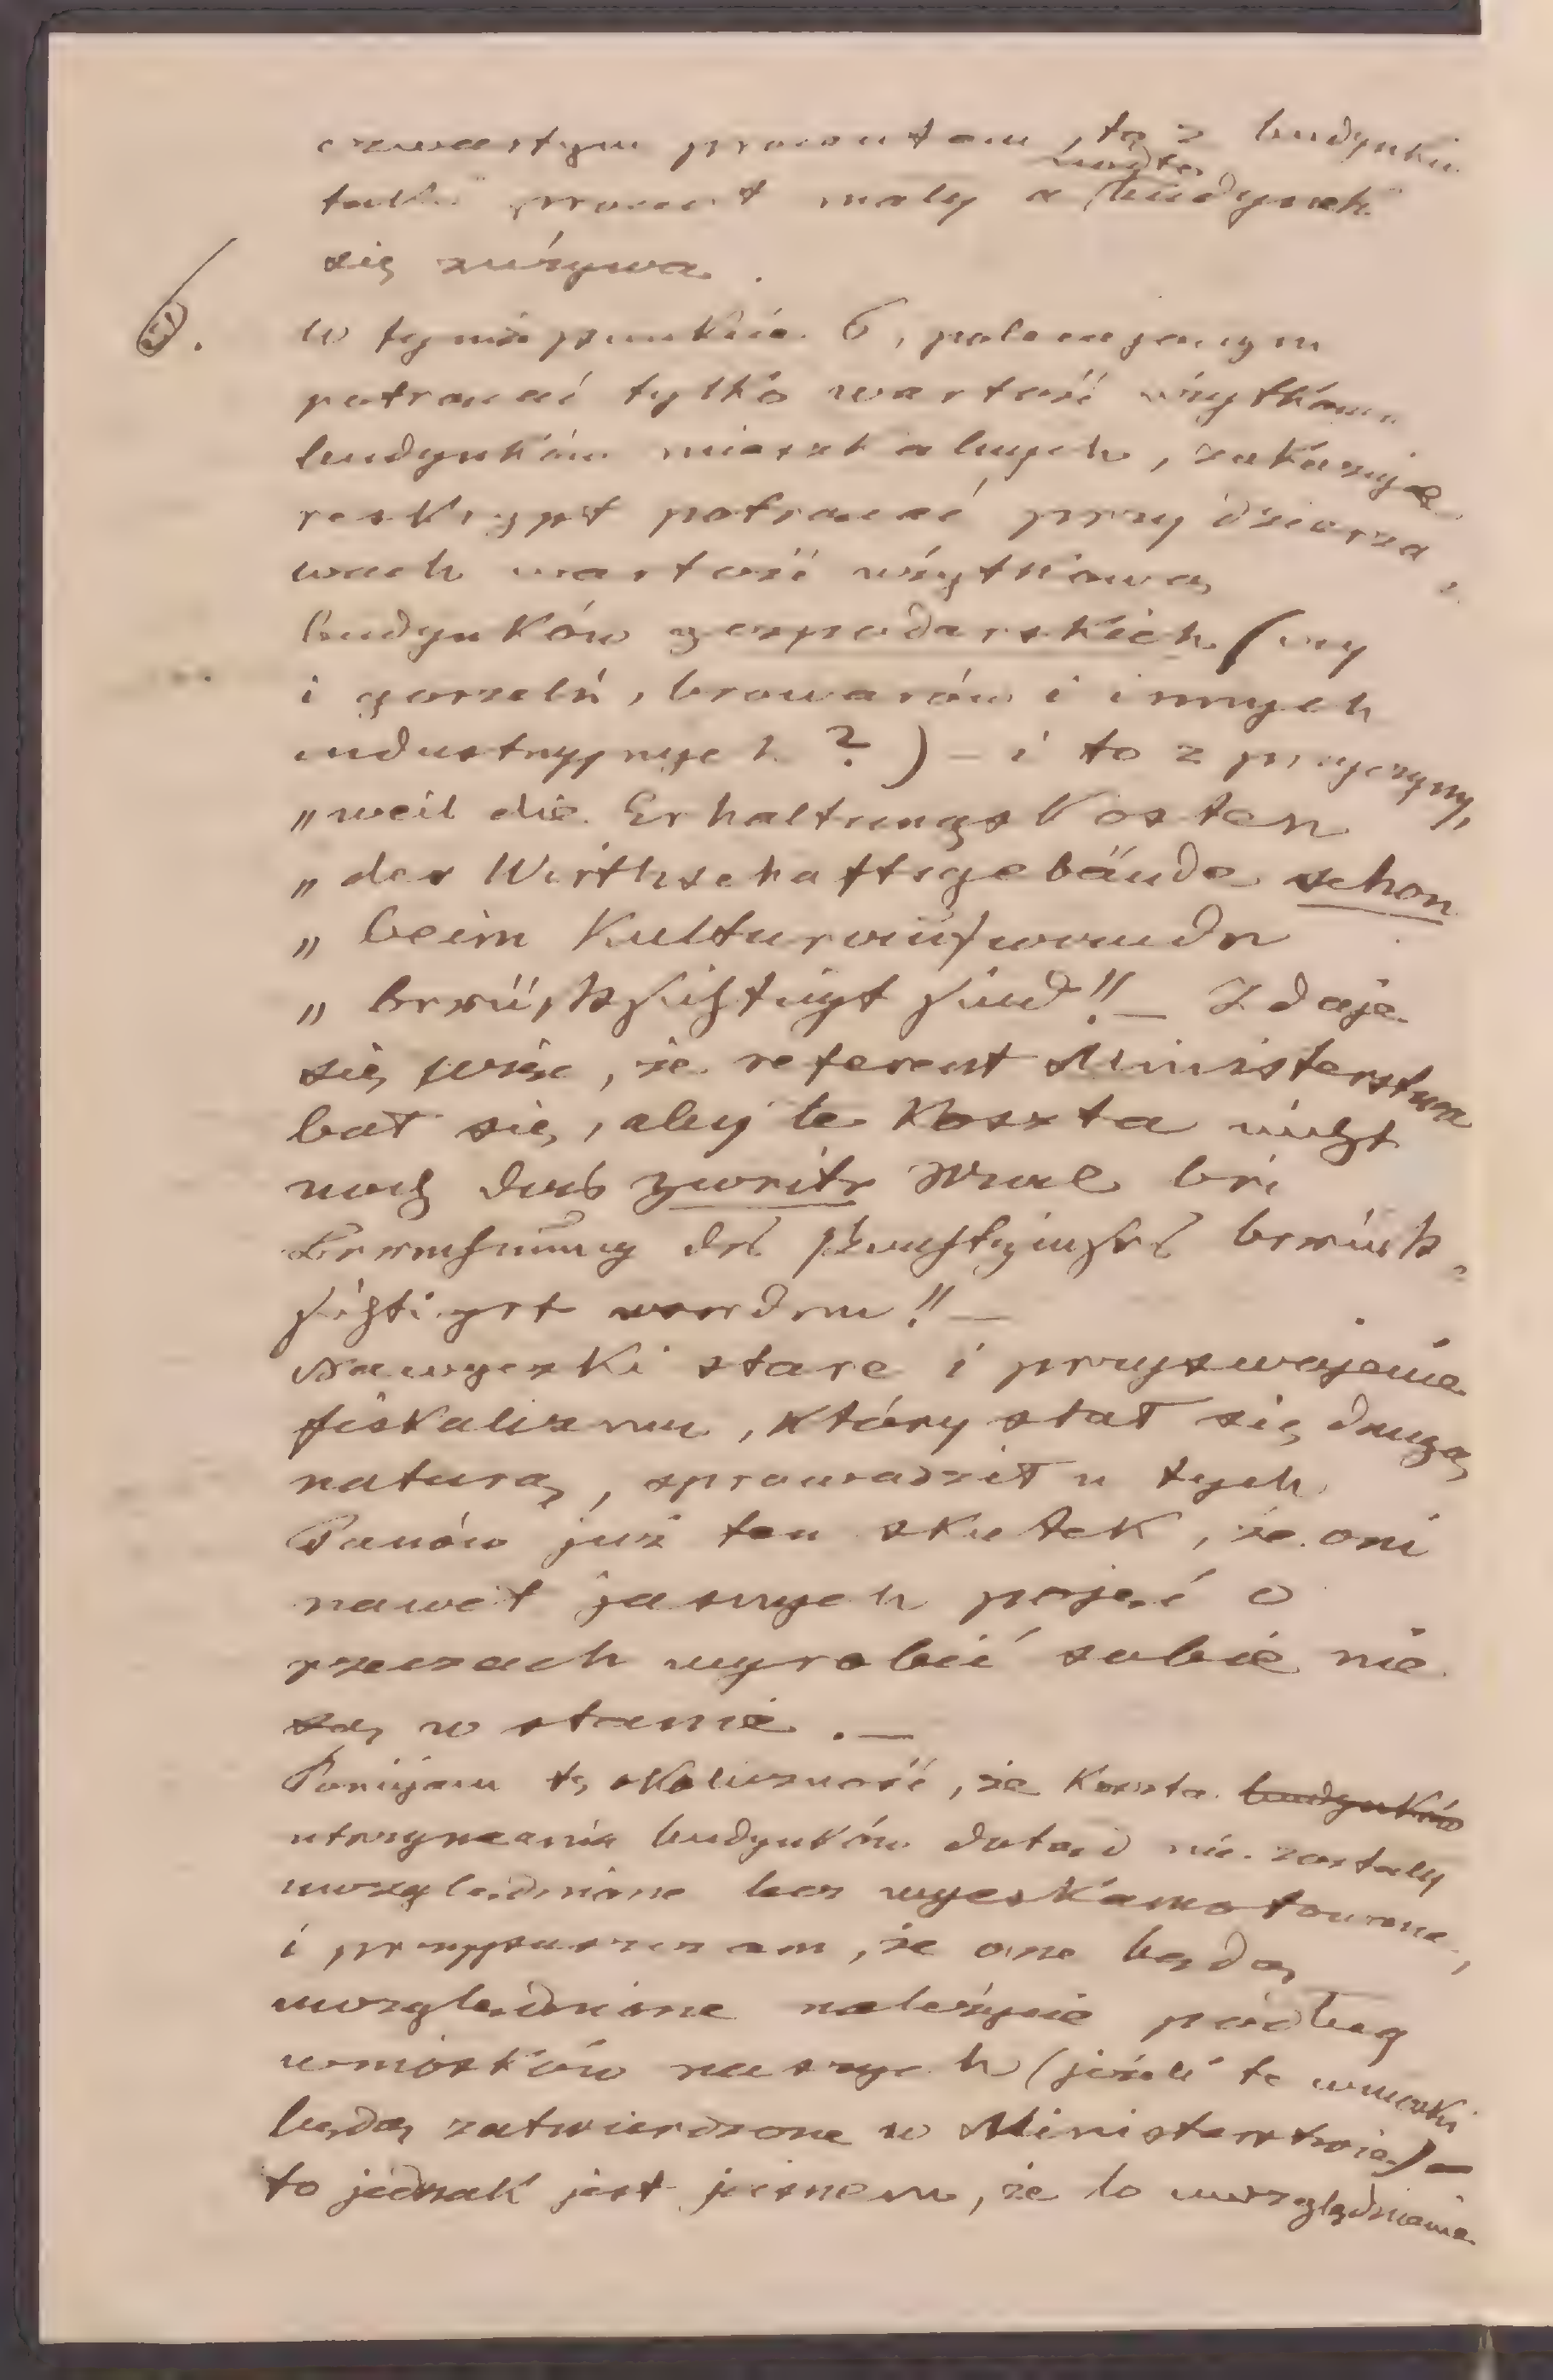 czwartym procentem, to z budynku
taki procent mały a budynek
się zużywa.
W tymże punkcie 6, polecającym
potrącać tylko wartość użytkową
budynków mieszkalnych, zakazuje
reskrypt potrącać przy dzierża-
wach wartość użytkową
budynków gospodarskich (czy
i gorzelń, browarów i innych
industryjnych?) – i to z przyczyny,
„weil die Erhaltungskosten
„der Wirthschaftsgebäude schon
„beim Kulturaufwande
„berücksichtigt sind!! – Zdaje
się więc, że referent Ministerstwa
bał się, aby te koszta nicht
noch das zweite Mal bei
Berechnung des Pachtzinses berück-
sichtigt werden!! –
Nawyczki stare i przyswojenie
fiskalizmu, który stał się drugą
naturą, sprowadził u tych
Panów już ten skutek, że oni
nawet jasnych pojęć o
rzeczach wyrobić sobie nie
są w stanie. –
Pomijam tę okoliczność, że koszta budynków
utrzymania budynków dotąd nie zostały
uwzględnione lecz wyeskamotowane,
i przypuszczam, że one będą
uwzględnione należycie podług
wniosków naszych (jeżeli te wnioski
będą zatwierdzone w Ministerstwie) –
to jednak jest jasnem, że to uwzględnienie